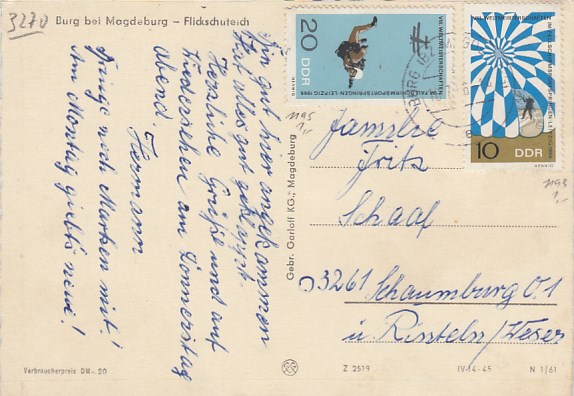 3270
Burg bei Magdeburg – Flickschuteich
Bin gut hier angekommen
Hat alles gut geklappt.
Herzliche Grüße und auf
Wiedersehen am Donnerstag
abend.
Hermann
Bringe noch Marken mit!
Am Montag giebt's neue!
Verbraucherpreis DM -.20
Gebr. Garloff KG., Magdeburg
20 DDR
VIII. WELTMEISTERSCHAFTEN
IM FALLSCHIRMSPORTSPRINGEN LEIPZIG 1966
VIII. WELTMEISTERSCHAFTEN
IM FALLSCHIRMSPORTSPRINGEN LEIPZIG 1966
10 DDR
1195
1,-
1193
1,-
Familie
Fritz
Schaaf
3261 Schaumburg O.1
ü. Rinteln/Weser
Z 2519
IV-14-45
N 1/61